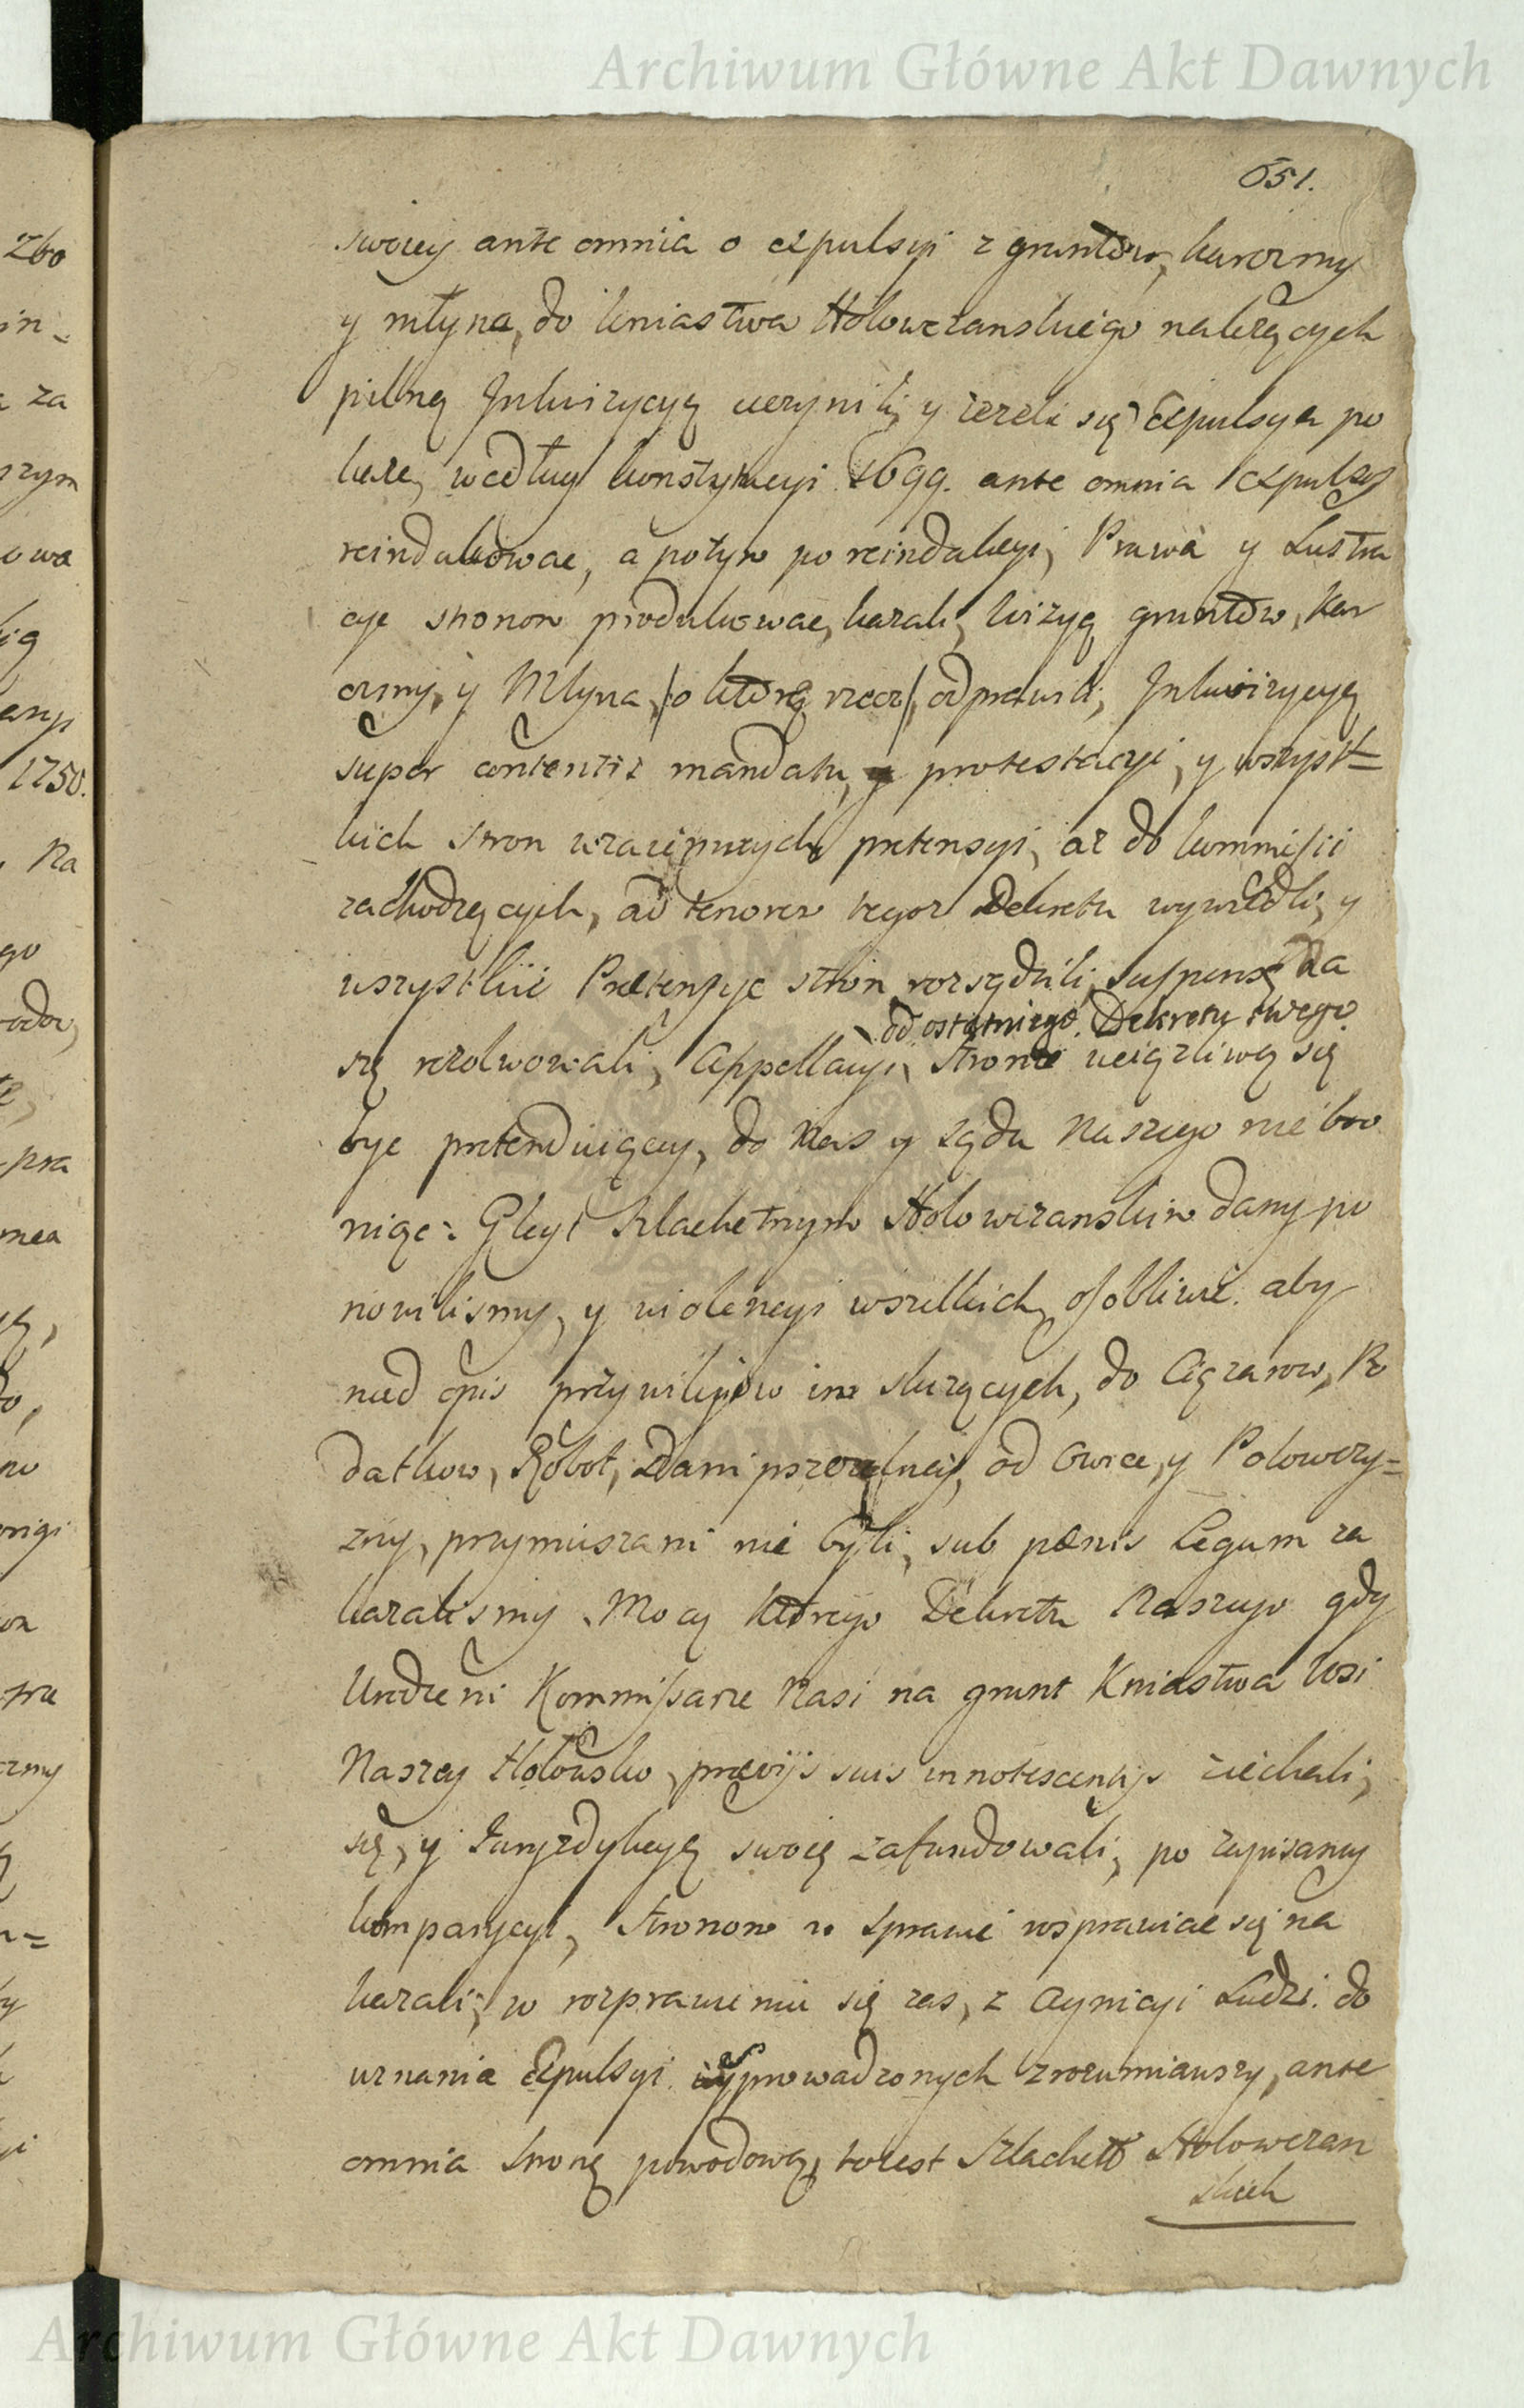 Archiwum Główne Akt Dawnych
651.
swoiey ante omnia o expulsyi z gruntow, karczmy
y młyna, do kniastwa Hołowczanskiego należących
pilną Jnkwizycyą uczynili, y ieżeli się Expulsya po
każe, według konstytucyi 1699. ante omnia expulsos
reindukować, a potym po reindukcyi, Prawa y Lustra
cye stronom produkować, kazali, wizyą gruntów, Kar
czmy, y Młyna, /o którą rzecz/, odprawili, Jnkwizycyą
super contentis mandatu, y protestacyi, y wszyst=
kich stron wzaiemnych pretensyi, aż do kommissii
zachodzących, ad tenorem tegoż Dekretu wywiedli, y
wszystkie Prætensye stron rozsądzili, suspensę Na
od ostatniego Dekretu swego
szę rezolwowali, Appellacyi, stronie uciążliwą się
byc pretenduiącey, do Nas y Sądu Naszego nie bro
niąc: Gleyt Szlachetnym Hołowczanskim dany po
nowilismy, y violencyi wszelkich, osobliwie aby
nad opis przywilejow im służących, do Ciężarow, Po
datkow, Robot, Dani pszczelney, od Owiec, y Połowczy=
zny, przymuszani nie byli, sub pænis Legum za
kazalismy. Mocą którego Dekretu Naszego gdy
Urodzeni Kommissarze Nasi na grunt Kniastwa Wsi
Naszey Hołowsko, præviis suis innotescentijs ziechali,
się, y Juryzdykcyą swoię zafundowali, po zapisaney
komparycyi, Stronom w sprawie rosprawiac się na
kazali, w rozprawieniu się zas, z Ludzi do
uznania Expulsyi wyprowadzonych zrozumiawszy, ante
omnia Stronę powodową, toiest Szlachett Hołowczan
skich
zbo
in=
za
1750.
Na
go
pra
mea
czmy
Archiwum Główne Akt Dawnych